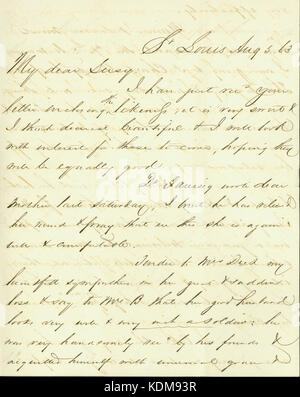 St Louis Aug 3, 63
My dear
I have just recd your
letter enclosing the likeness, it is very sweet &
I think dearest beautiful & I will look
with interest for those to come, hoping they
will be equally good
Dr wrote dear
Mother last Saturday, I trust he has
her mind & fancy that ere this she is again
well & comfortable.
Tender to Mrs my
heartfelt sympathies in her great & sudden
loss & say to Mrs B that her good husband
looks very well & very not a soldier; he
was very handsomely recd by his friends &
acquitted himself with unusual grace &
alamy
Image ID: KDM93R
www.alamy.com